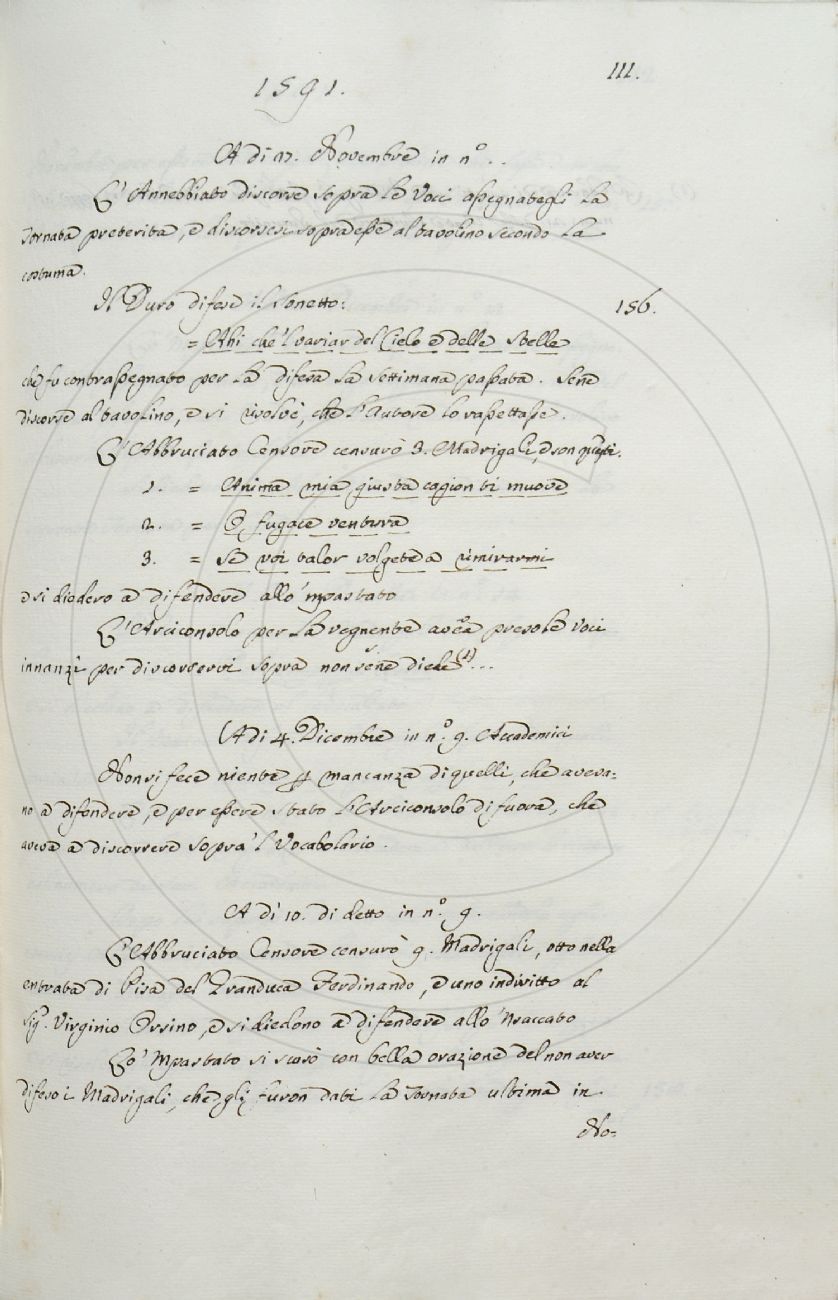 111.
1591.
A di 17. Novembre in n.º ..
L'Annebbiato discorse sopra le Voci assegnategli la
tornata preterita, e discorsesi sopra esse al tavolino secondo la
costuma.
Il Duro difese il sonetto: 156.
= Ahi che 'l variar del Cielo e delle stelle
che fu contrassegnato per la difesa la settimana passata. Sene
discorse al tavolino, e si risolvè, che l'Autore lo rassettasse.
L'Abbruciato Censore censurò 3. Madrigali, e son questi.
1. = Anima mia giusta cagion ti muove
2. = O fugace ventura
3. = Se voi talor volgete a rimirarmi
e si diedero a difendere allo 'mpastato
L'Arciconsolo per la vegnente avea prese le voci
innanzi per discorrervi sopra non sene diede (1) ...
A di 4. Dicembre in n.º 9. Accademici
Non si fece niente p mancanza di quelli, che aveva=
no a difendere, e per essere stato l'Arciconsolo di fuora, che
aveva a discorrere sopra 'l Vocabolario.
A di 10. di detto in n.º 9.
L'Abbruciato Censore censurò 9. Madrigali, otto nella
entrata di Pisa del Granduca Ferdinando, e uno indiritto al
Sig.r Virginio Orsino, e si diedono a difendere allo 'Nsaccato
Lo 'Mpastato si scusò con bella orazione del non aver
difeso i Madrigali, che gli furon dati la tornata ultima in
No=